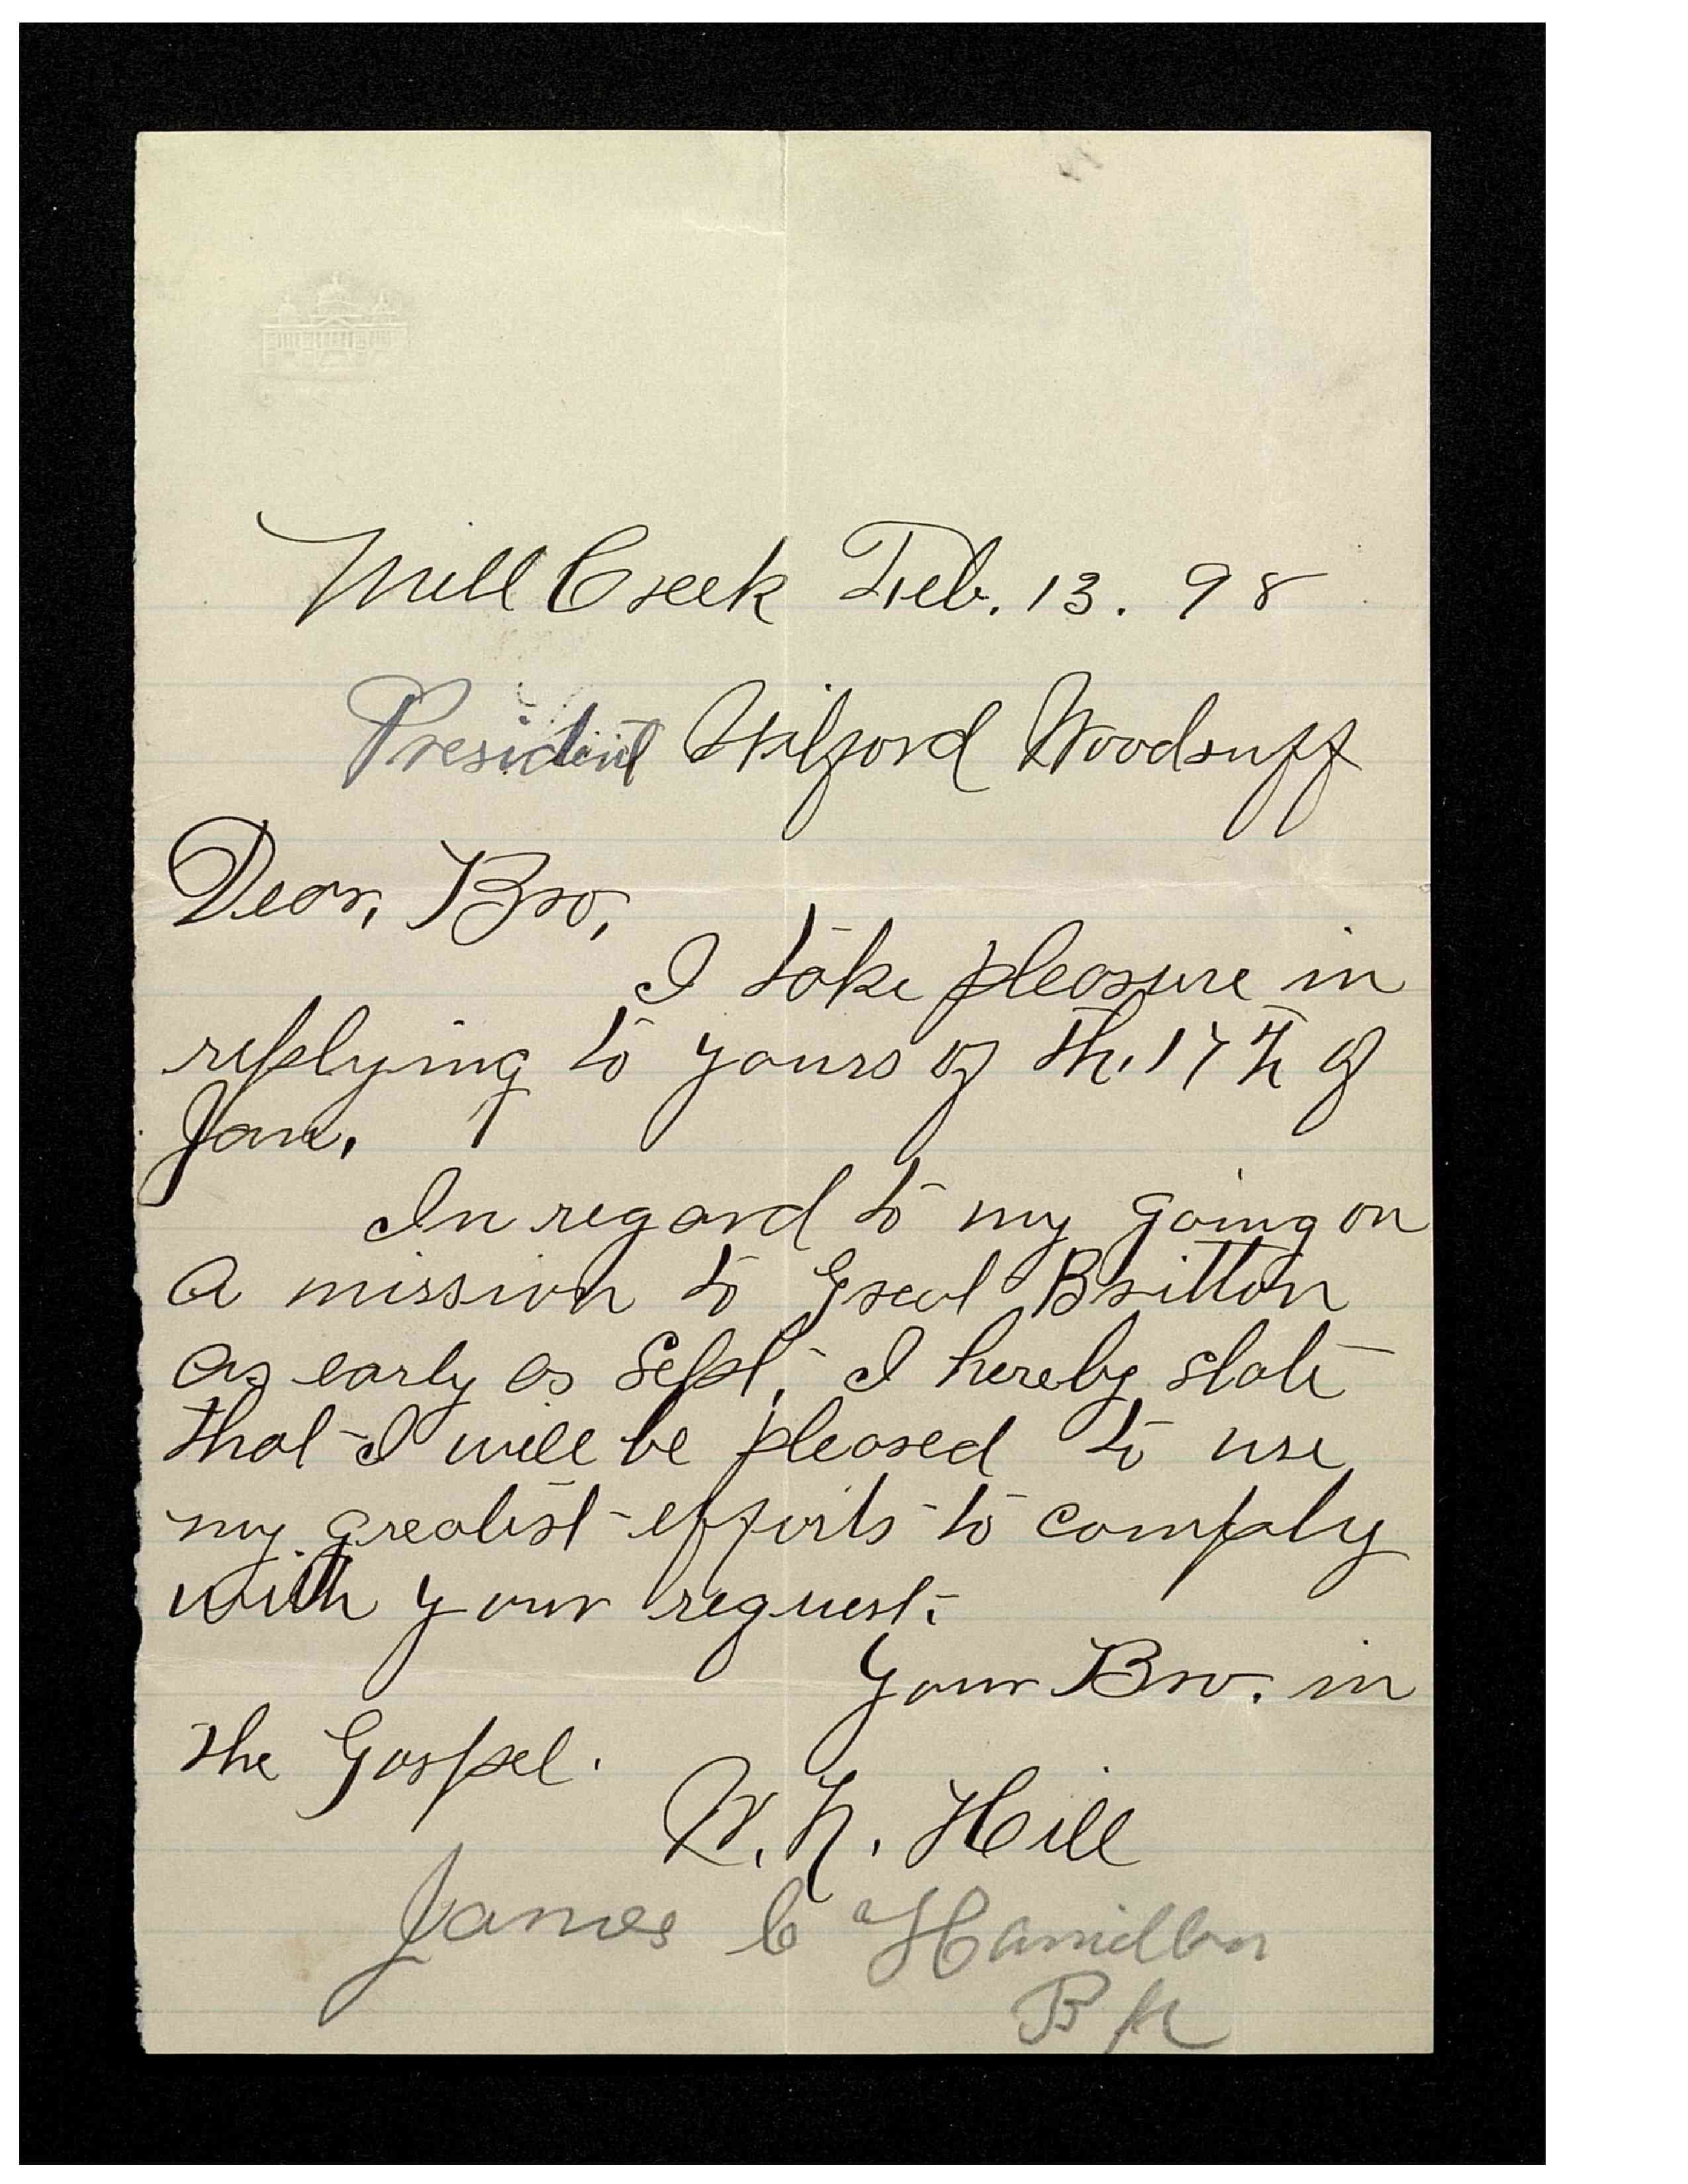 Mill Creek Feb. 13. 98
President Wilford Woodruff
Dear, Bro,
I take pleasure in
replying to yours of th. 17th of
Jan.
In regard to my going on
a mission to Great Britton
as early as Sept, I hereby state
that I will be pleased to use
my greatest efforts to comply
with your request.
Your Bro. in
the Gospel.
W. N. Hill
James C Hamilton
Bp